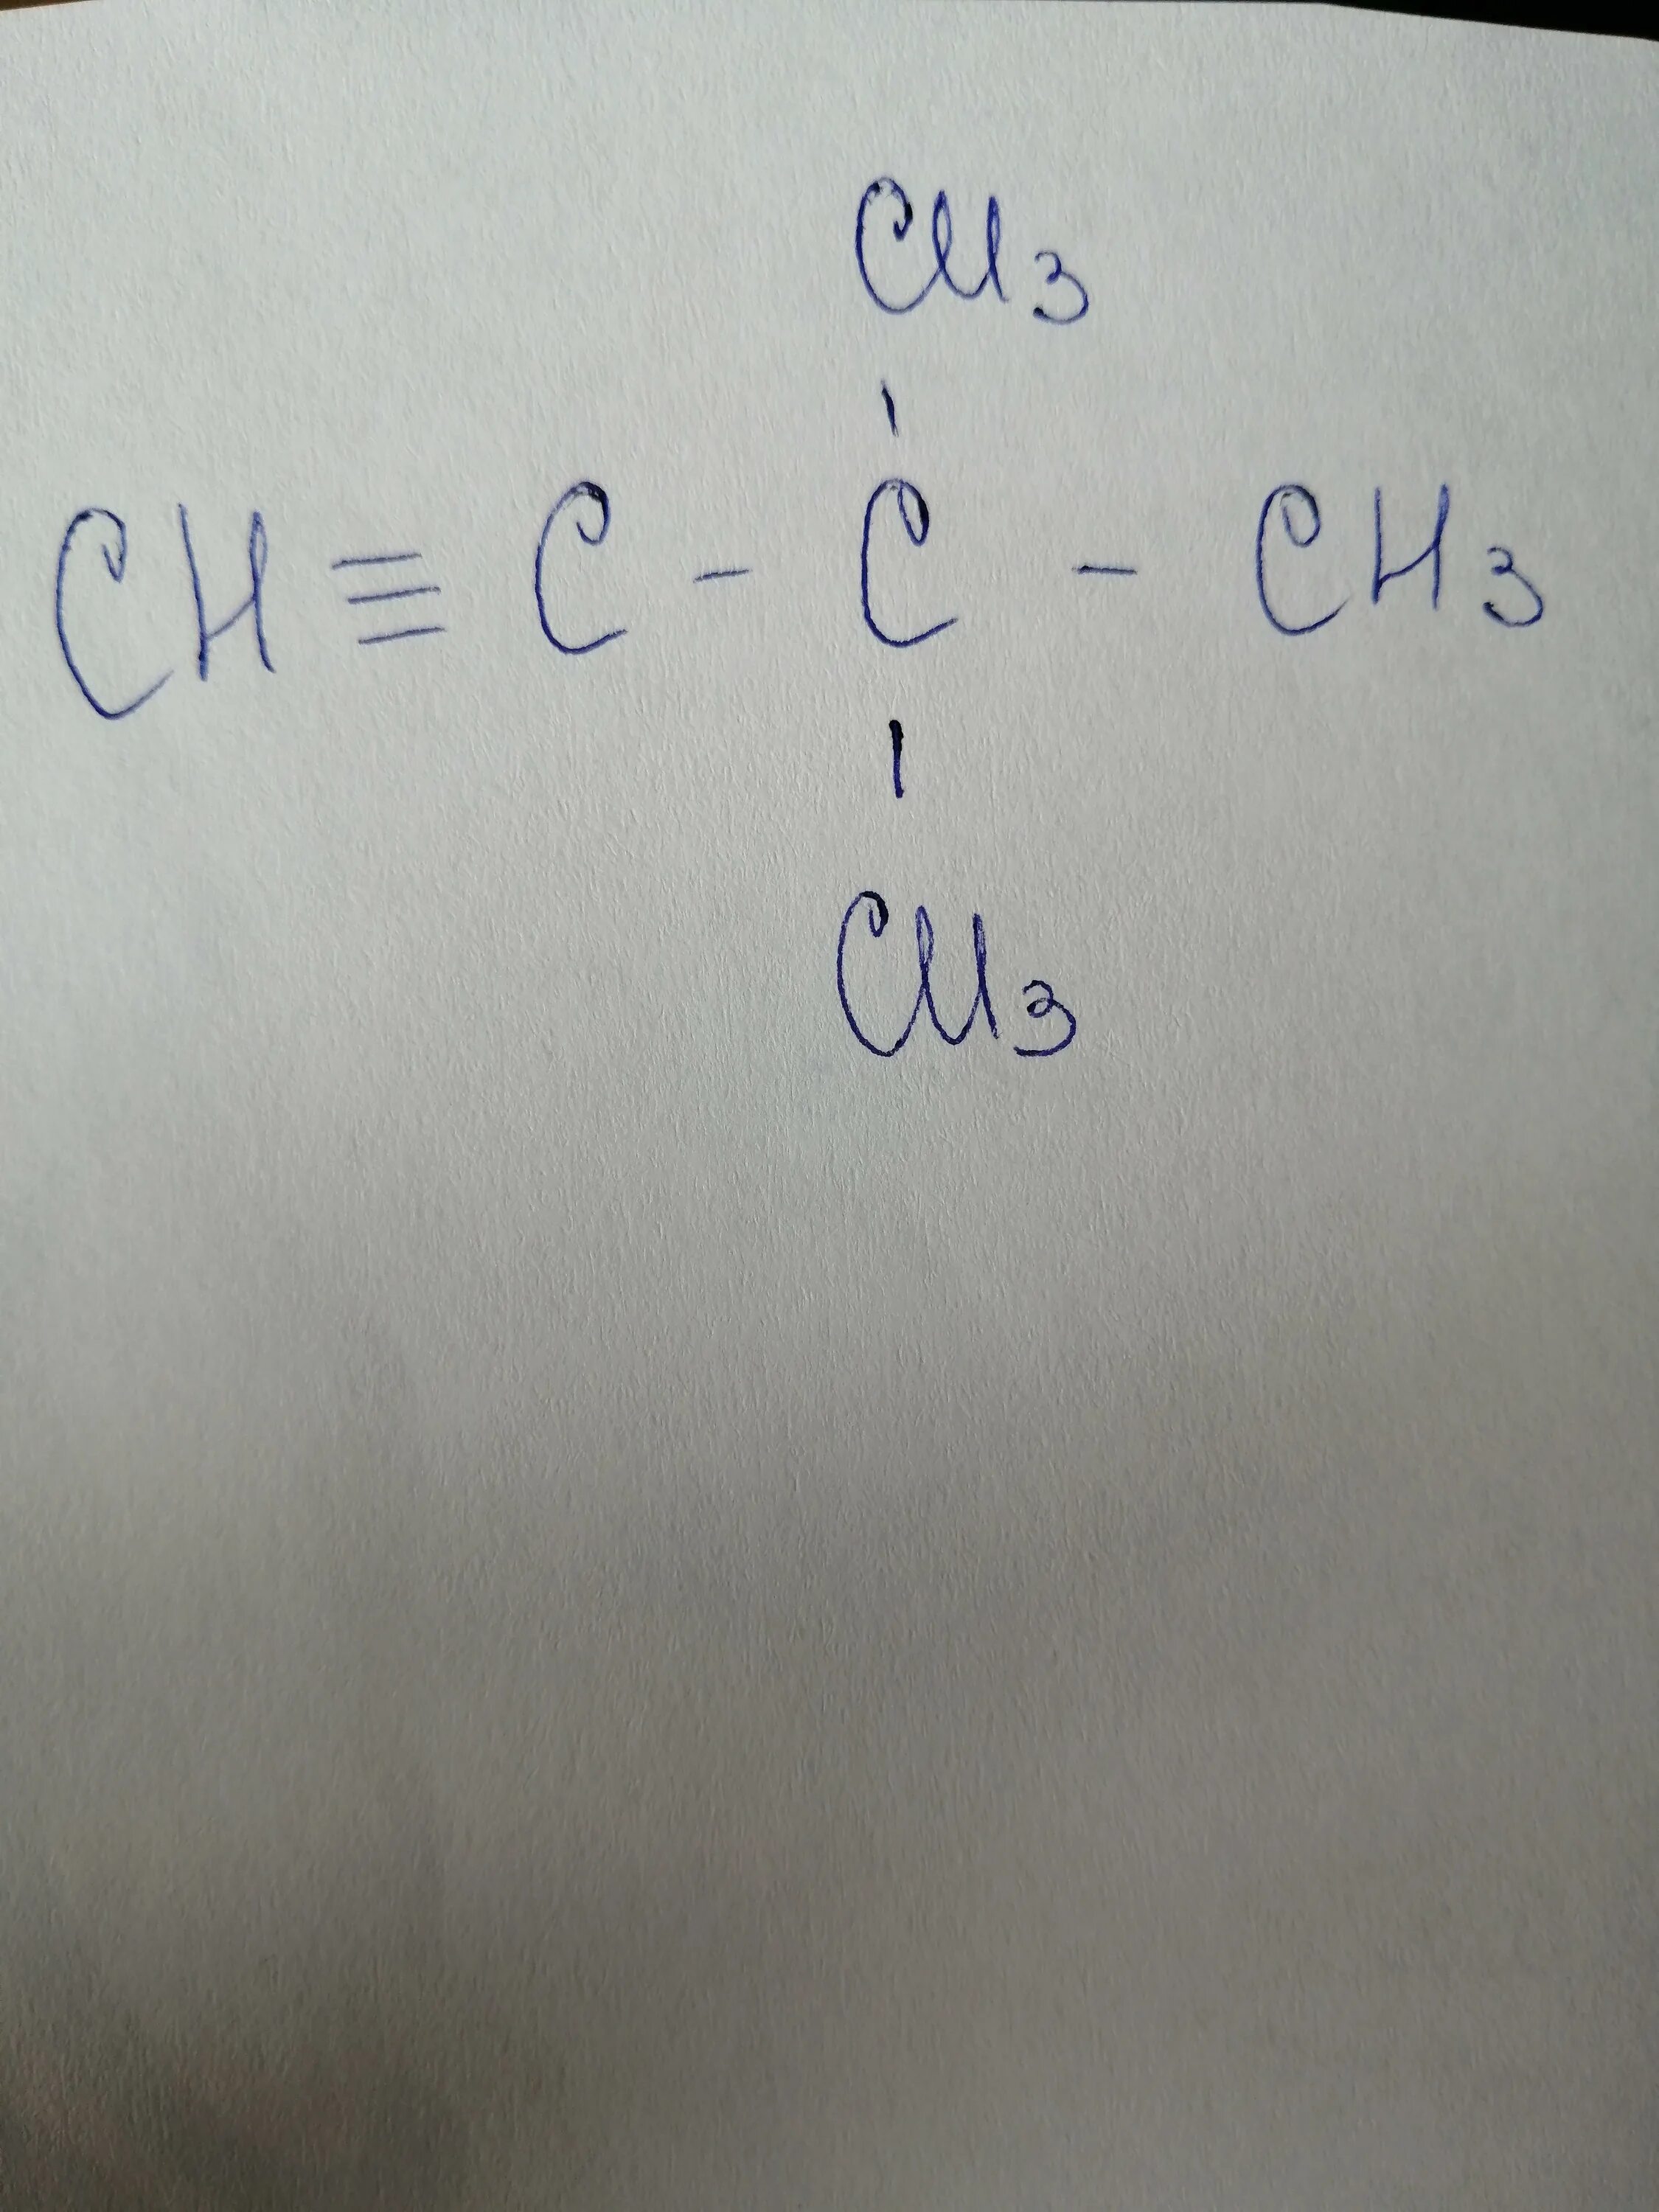 CH3
CH≡C-C-CH3
CH3